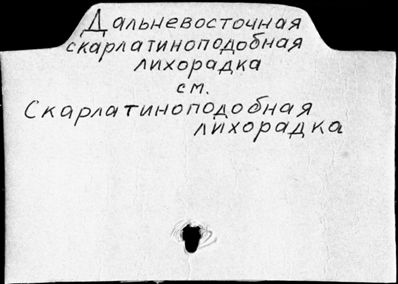 Дальневосточная
скарлатиноподобная
лихорадка
см.
Скарлатиноподобная
лихорадка